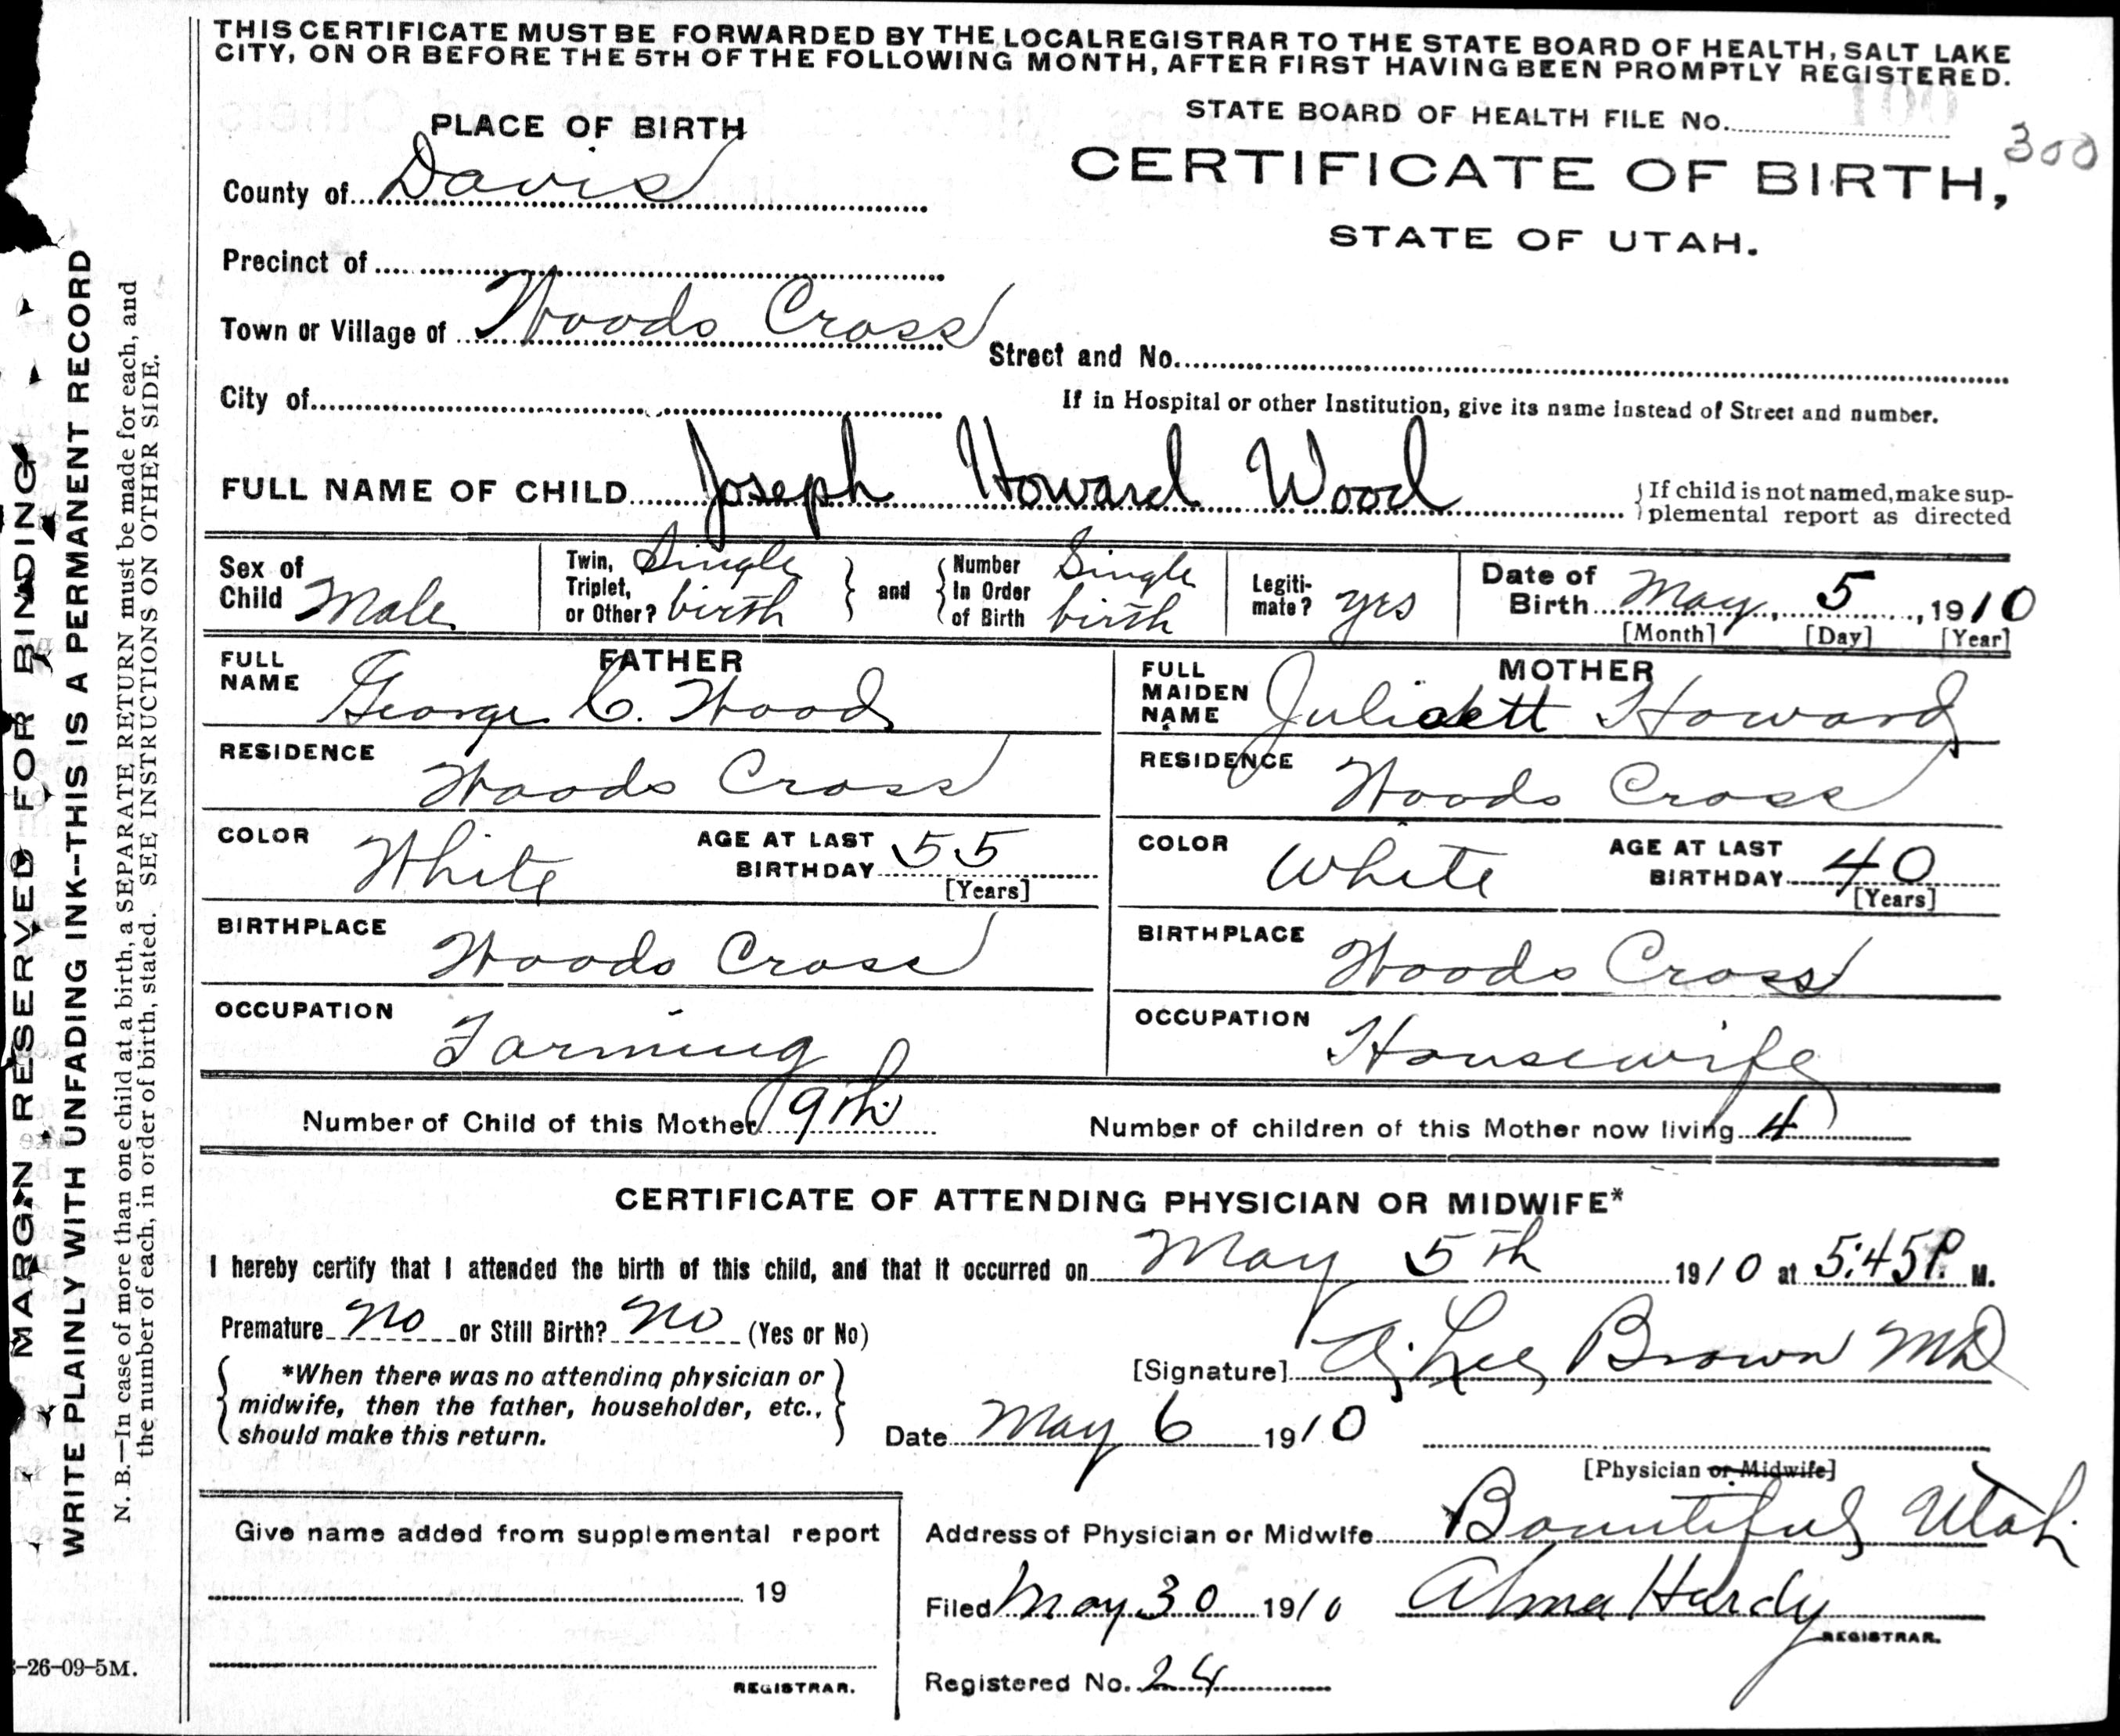 THIS CERTIFICATE MUST BE FORWARDED BY THE LOCAL REGISTRAR TO THE STATE BOARD OF HEALTH, SALT LAKE
CITY, ON OR BEFORE THE 5TH OF THE FOLLOWING MONTH, AFTER FIRST HAVING BEEN PROMPTLY REGISTERED.
STATE BOARD OF HEALTH FILE No.
300
PLACE OF BIRTH
CERTIFICATE OF BIRTH,
STATE OF UTAH.
County of Davis
Precinct of
Town or Village of Woods Cross
Street and No.
City of
If in Hospital or other Institution, give its name instead of Street and number.
FULL NAME OF CHILD Joseph Howard Wood
If child is not named, make sup-
plemental report as directed
Sex of Child Male
Twin, Triplet, or Other? Single birth
and
Number In Order of Birth Single birth
Legiti-mate? yes
Date of Birth May 5, 1910
[Month] [Day] [Year]
FATHER
FULL NAME George C. Wood
RESIDENCE Woods Cross
COLOR White
AGE AT LAST BIRTHDAY 55
[Years]
BIRTHPLACE Woods Cross
OCCUPATION Farming
MOTHER
FULL MAIDEN NAME Howard
RESIDENCE Woods Cross
COLOR White
AGE AT LAST BIRTHDAY 40
[Years]
BIRTHPLACE Woods Cross
OCCUPATION Housewife
Number of Child of this Mother 9th
Number of children of this Mother now living 4
CERTIFICATE OF ATTENDING PHYSICIAN OR MIDWIFE*
I hereby certify that I attended the birth of this child, and that it occurred on May 5th 1910 at 5:45 P. M.
Premature no or Still Birth? no (Yes or No)
*When there was no attending physician or
midwife, then the father, householder, etc.,
should make this return.
[Signature] Lee Brown MD
Date May 6 1910
[Physician or Midwife]
Give name added from supplemental report
19
REGISTRAR.
Address of Physician or Midwife Bountiful Utah
Filed May 30 1910 Alma Hardy
REGISTRAR.
Registered No. 24
-26-09-5M.
MARGIN RESERVED FOR BINDING
WRITE PLAINLY WITH UNFADING INK--THIS IS A PERMANENT RECORD
N. B.—In case of more than one child at a birth, a SEPARATE RETURN must be made for each, and
the number of each, in order of birth, stated. SEE INSTRUCTIONS ON OTHER SIDE.